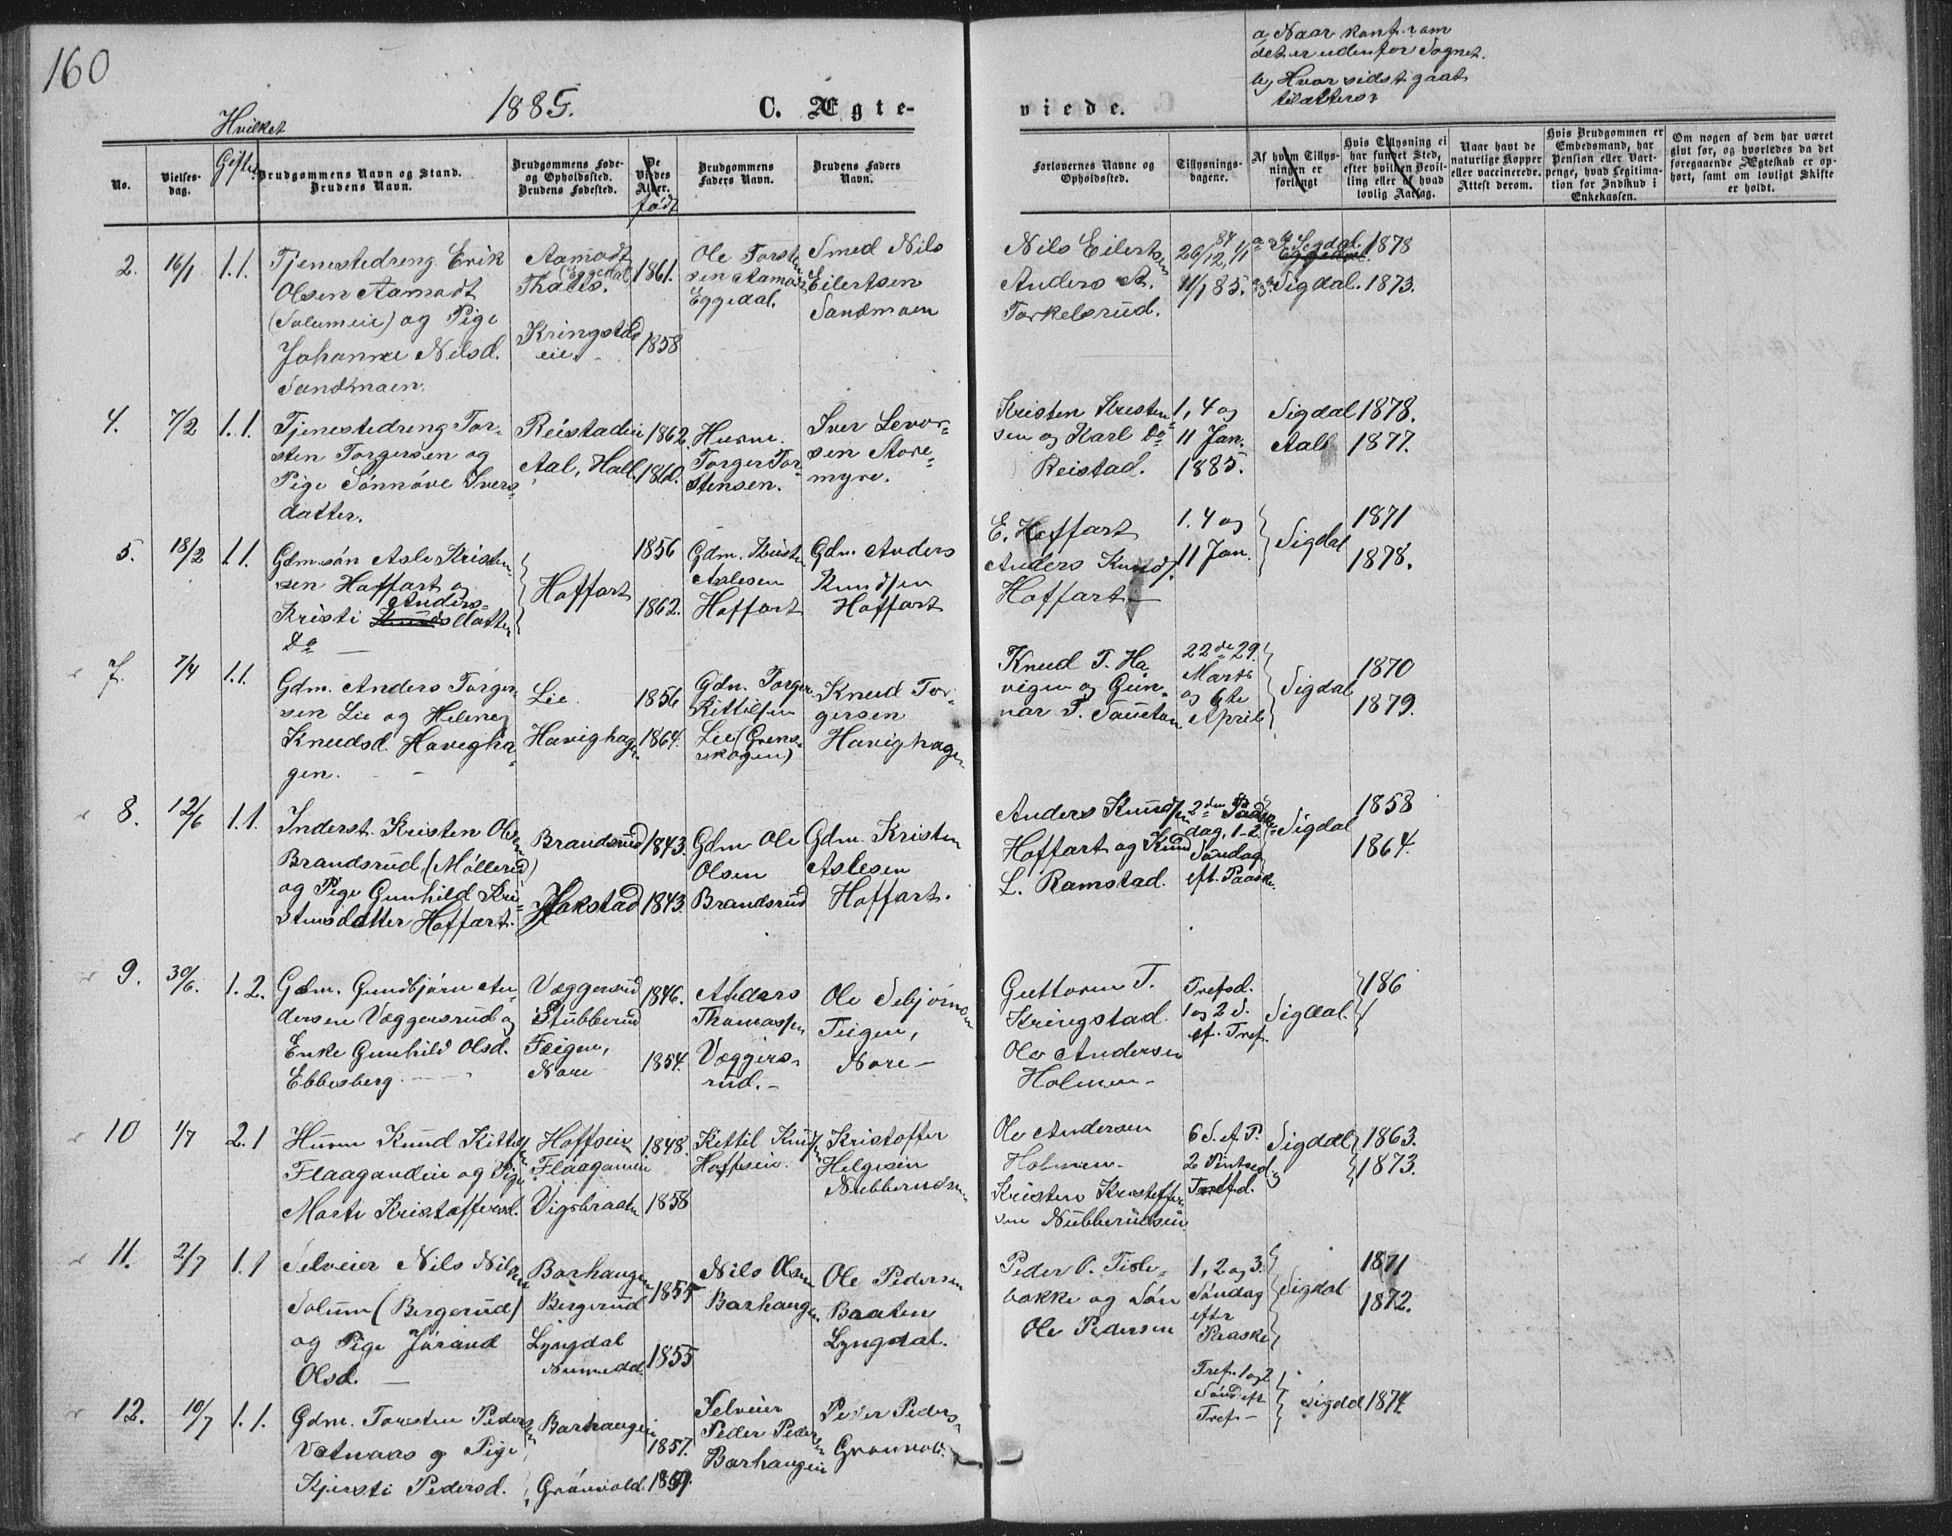 160
1885.
C. Ægte-
viede.
a, Naar konf. som
det er udenfor Sognet.
b, Hvor sidst gaat
tilalters?
Hvilket
Gifte.
No.
Vielses-
dag.
Brudgommens Navn og Stand.
Brudens Navn.
Brudgommens Føde-
og Opholdssted.
Brudens Fødested.
De
Viedes
Alder.
født
Brudgommens
Faders Navn.
Brudens Faders
Navn.
Forlovernes Navne og
Opholdssted.
Tillysnings-
dagene.
Af hvem Tillys-
ningen er
forlangt
Hvis Tillysning ei
har fundet Sted,
efter hvilken Bevil-
ling eller af hvad
lovlig Aarsag.
Naar havt de
naturlige Kopper
eller vaccinerede.
Attest derom.
Hvis Brudgommen er
Embedsmand, har
Pension eller Vart-
penge, hvad Legitima-
tion for Indskud i
Enkekassen.
Om nogen af dem har været
gift før, og hvorledes da det
foregaaende Ægteskab er op-
hørt, samt om lovligt Skifte
er holdt.
2. 16/1 1.1.
Tjenestedreng Erik
Olsen Aamodt
(Solumeie) og Pige
Johanne Nilsd.
Sandmoen.
Aamodt
(Eggedal)
Kringstad
eie.
1861.
1858
Ole Torsten
sen Aamodt
Eggedal.
Smed Nils
Eilertsen
Sandmoen
Nils Eilertsen
Anders A.
Torkelsrud.
84
26/12, 1/1
11/1 85.
Sigdal. 1878
Sigdal. 1873.
4. 7/2 1.1.
Tjenestedreng Tor-
sten Torgersen og
Pige Sønnøve Ivers-
datter.
Reistadeie
Aal, Hall.
1862.
1860.
Husm.
Torger Tor-
stensen.
Iver Levor-
sen Store-
myre.
Kristen Kristen-
sen og Karl Do
Reistad.
1, 4 og
11 Jan.
1885.
Sigdal 1878.
Aal 1877.
5. 18/2 1.1.
Gdm.søn Asle Kristen-
sen Hoffart og
Anders-
Kristi Knuds datter
Do
Hoffart
1856
1862.
Gdm. Kristen
Aslesen
Hoffart
Gdm. Anders
Knudsen
Hoffart
E. Hoffart
Anders Knuds.
Hoffart
1. 4 og
11 Jan.
Sigdal
1871
1878.
7. 7/4 1.1.
Gdm. Anders Torger-
sen Lie og Helene
Knudsd. Havigha-
gen.
Lie
Havighagen.
1856
1864.
Gdm. Torger
Kittilsen
Lie (Grens-
skogen)
Knud Tor-
gersen
Havighagen
Knud T. Ha
vigen og Gun-
nar T.
22de 29.
Marts
og 6te
April
Sigdal
1870
1879.
8. 12/6 1.1.
Inderst. Kristen Olsen
Brandsrud (Møllerud)
og Pige Gunhild Kri-
stensdatter Hoffart.
Brandsrud
Hokstad
1843.
1843.
Gdm Ole
Olsen
Brandsrud
Gdm. Kristen
Aslesen
Hoffart.
Anders Knudsen
Hoffart og Knud
L. Ramstad.
2den Paaske
dag, 1-2
Søndag
eft. Paaske.
Sigdal
1858
1864.
9. 30/6. 1.2.
Gdm. Gundbjørn An-
dersen Væggersrud og
Enke Gunhild Olsd.
Ebbesberg.
Væggersrud
Stubberud
Teigen,
Nore
1846.
1854.
Anders
Thomassen
Væggers-
rud.
Ole Sebjørnsen
Teigen,
Nore
Guttorm T.
Kringstad
Ole Andersen
Holmen
Trefsd.
1 og 2 S.
ef. Tref.
Sigdal.
186
10 1/7 2.1
Husm Knud Kittelsen
Flaagandeie og Pige
Marte Kristoffersd.
Hoffseie
Vigsbraaten
1848.
1858
Kittil Knudsen
Hoffseie.
Kristoffer
Helgesen
Nubberudseie
Ole Andersen
Holmen
Kristen Kristoffer
sen Nubberudseie
6 S. ef. P.
2 Pintsed.
Trefsd.
Sigdal
1863.
1873.
11. 2/7 1.1
Selveier Nils Nilsen
Solum (Bergerud)
og Pige Jørand
Olsd.
Borhaugen
Bergerud
Lyngdal
Numedal
1855
1855
Nils Olsen
Borhaugen
Ole Pedersen
Braaten
Lyngdal.
Peder O. Tisle-
bakke og Søn
Ole Pedersen
1, 2 og 3.
Søndag
efter
Paaske
Sigdal
1871
1872.
12. 10/7 1.1.
Gdm. Torsten Pedersen
Vatnaas og Pige
Kjersti Pedersd.
Borhaugen
Grønvold.
1857.
Selveier
Peder Pedersen
Borhaugen
Peder Peders-
Grønvold.
Tref. 1 og 2
Sønd. eft
Tref
Sigdal 1874